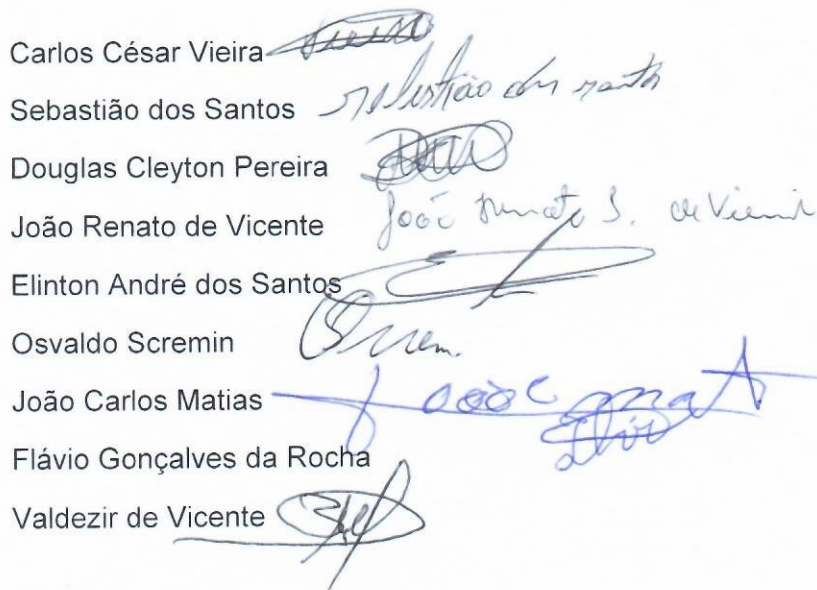 Carlos César Vieira Vieira
Sebastião dos Santos Sebastião dos Santos
Douglas Cleyton Pereira
João Renato de Vicente João Renato S. de Vicente
Elinton André dos Santos
Osvaldo Scremin
João Carlos Matias João C Mat
Flávio Gonçalves da Rocha
Valdezir de Vicente